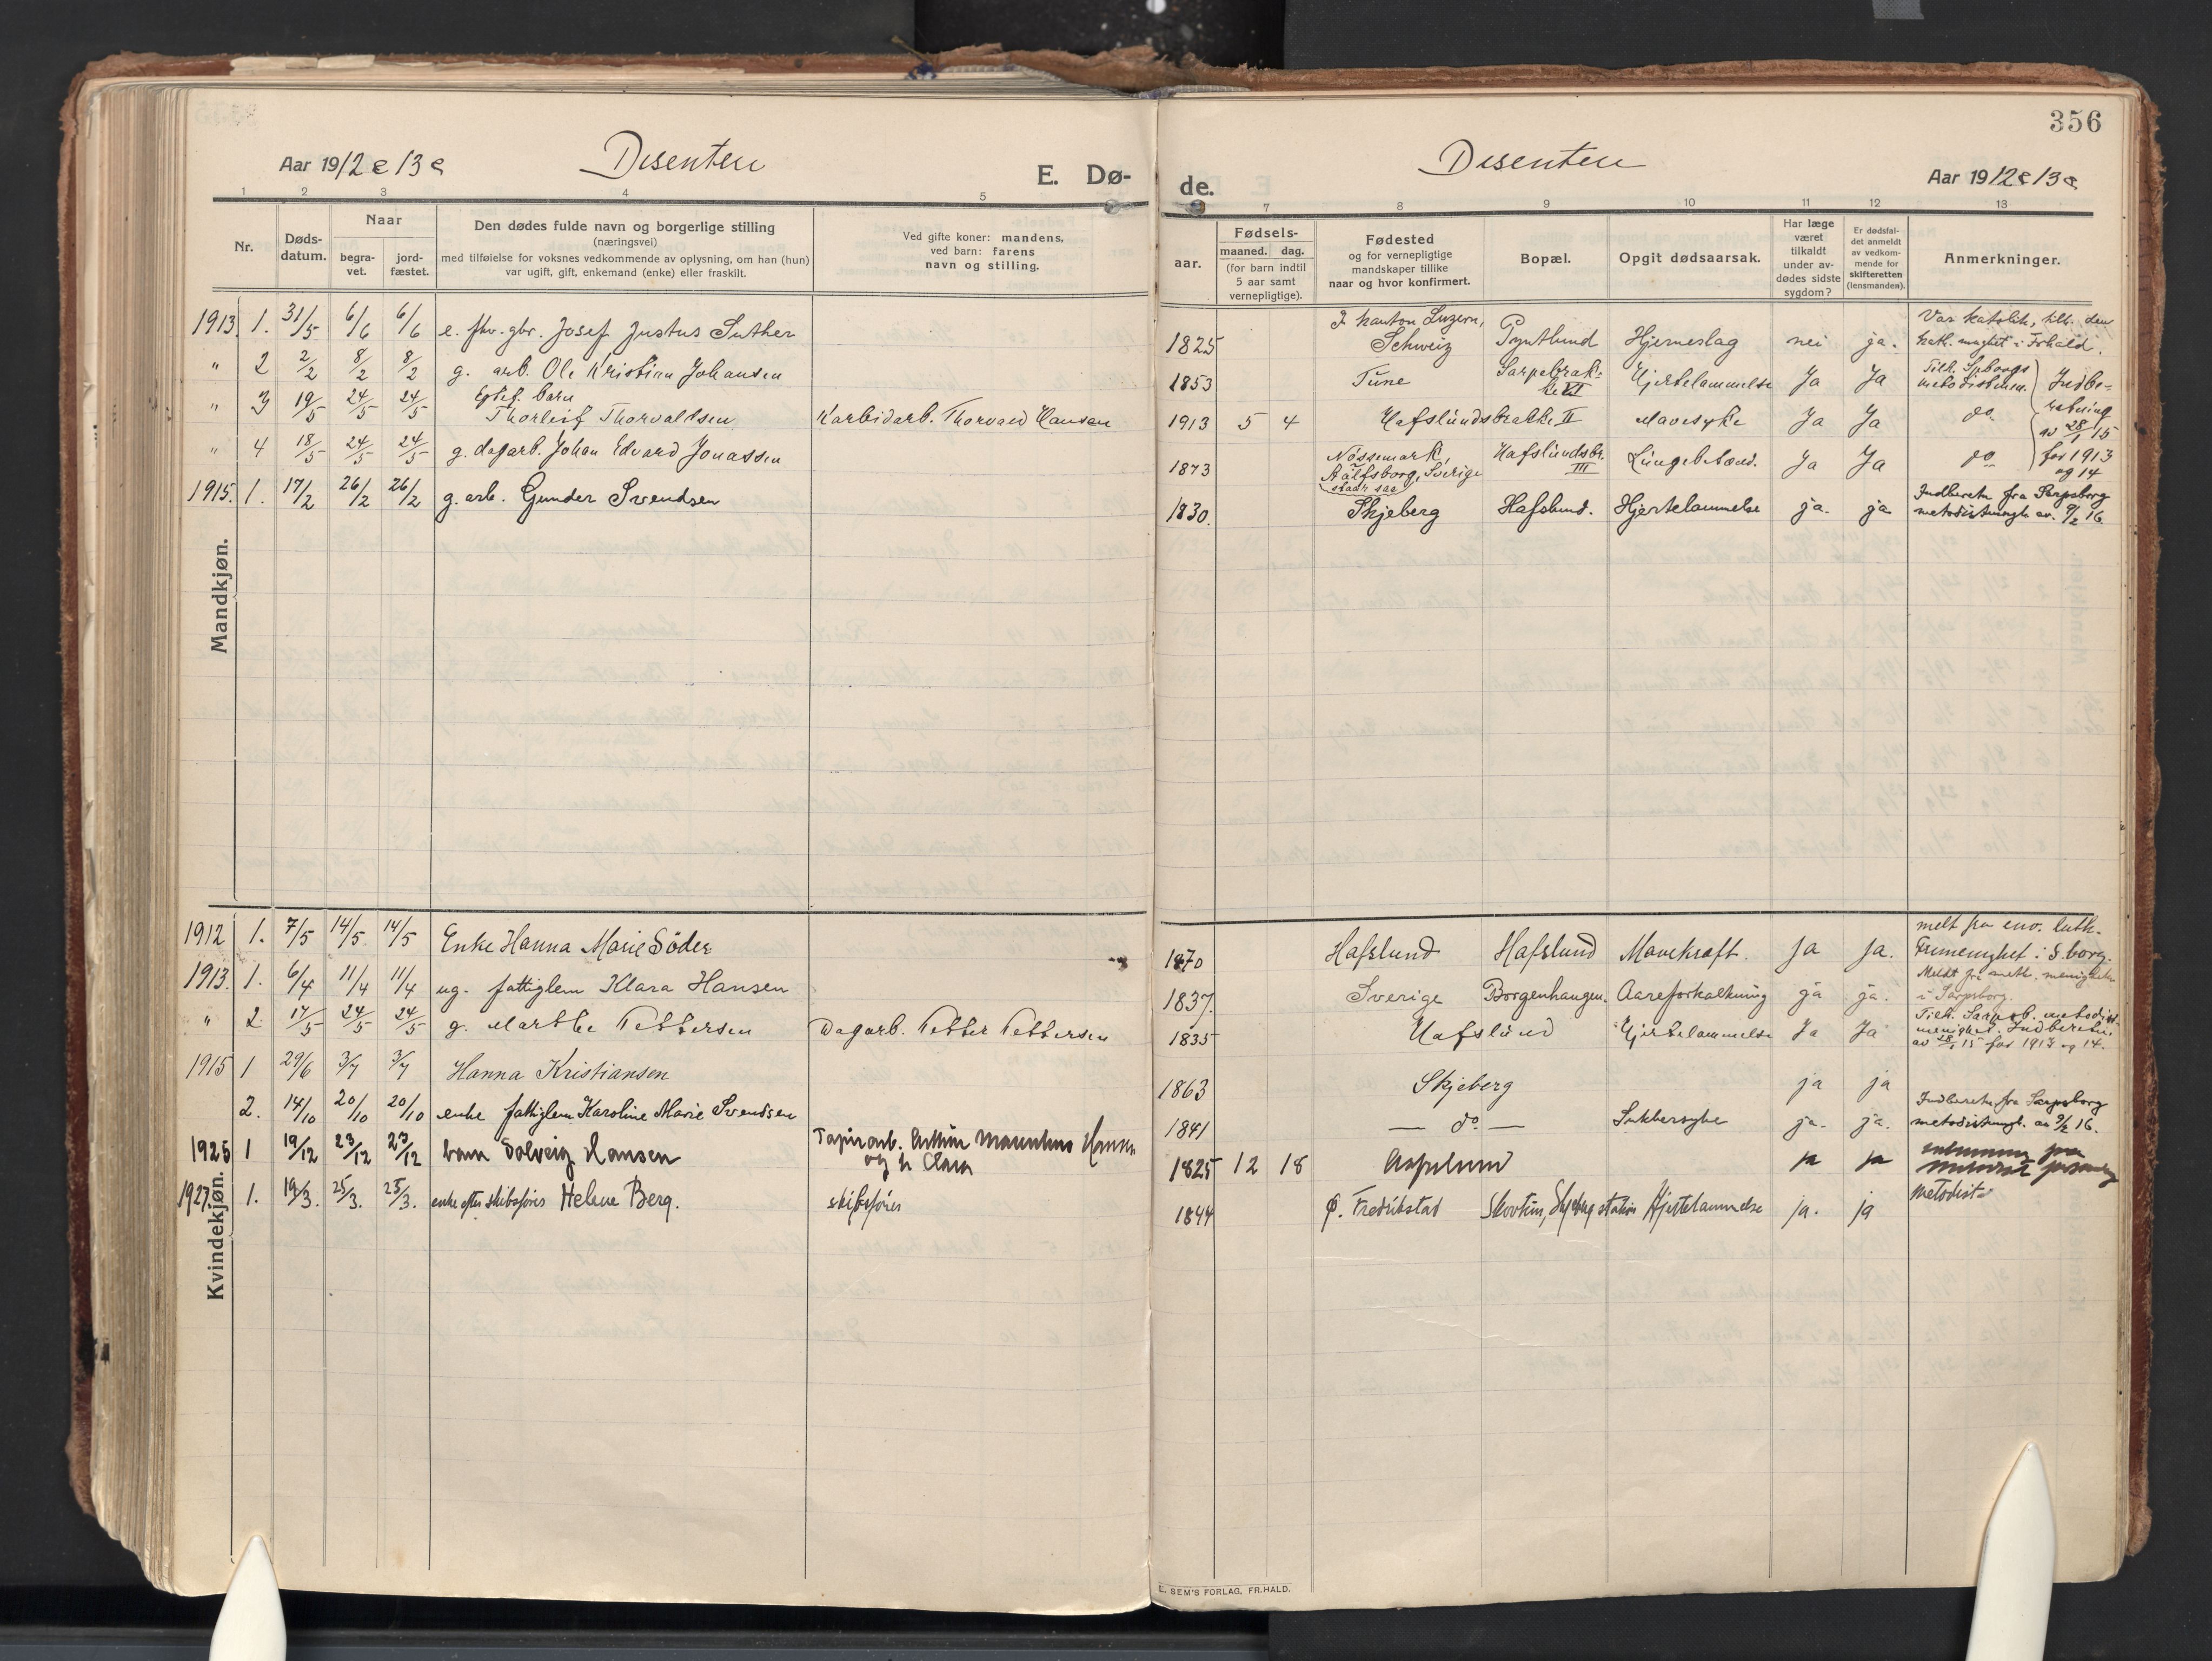 356
Aar 1912 & 13 &
Disentere
E. Dø-
de.
Disentere
Aar 1912 & 13 &
1 2 3 4 5
7 8 9 10 11 12 13
Nr.
Døds-
datum.
Naar
begra-
vet.
jord-
fæstet.
Den dødes fulde navn og borgerlige stilling
(næringsvei)
med tilføielse for voksnes vedkommende av oplysning, om han (hun)
var ugift, gift, enkemand (enke) eller fraskilt.
Ved gifte koner: mandens,
ved barn: farens
navn og stilling.
aar.
Fødsels-
maaned. dag.
(for barn indtil
5 aar samt
vernepligtige).
Fødested
og for vernepligtige
mandskaper tillike
naar og hvor konfirmert.
Bopæl.
Opgit dødsaarsak.
Har læge
været
tilkaldt
under av-
dødes sidste
sygdom?
Er dødsfal-
det anmeldt
av vedkom-
mende for
skifteretten
(lensmanden).
Anmerkninger.
Mandkjøn.
1913. 1. 31/5 6/6 6/6 e. fhv. gbr. Josef Justus Suther 1825 I kanton Luzern,
Schweiz Pyntlund Hjerneslag nei ja. Var katolik, tilh. den
kath. meghet i Frhald.
" 2 2/2 8/2 8/2 g. arb. Ole Kristian Johansen 1853 Tune Sarpebrak-
ke VI Hjertelammelse Ja Ja Tilh. Spborgs
metodistmen.
" 3 19/5 24/5 24/5 Egtef. barn
Thorleif Thorvaldsen Karbidarb. Thorvald Hansen 1913 5 4 Hafslundsbrakke II Mavesyke Ja Ja do
" 4 18/5 24/5 24/5 g. dagarb. Johan Edvard Jonassen 1873 Nössemark,
Aälfsborg, Sverige
staar saa Hafslundsbr.
III Lungebetænd. Ja Ja do
Indbe-
retning
av 28/1 15
for 1913
og 14
1915. 1. 17/2 26/2 26/2 g. arb. Gunder Svendsen 1830. Skjeberg Hafslund. Hjertelammelse ja. ja Indberetn fra Sarpsborg
metodistmngh. av. 9/2 16.
Kvindekjøn.
1912 1. 7/5 14/5 14/5 Enke Hanna Marie Söder 1870 Hafslund Hafslund Mavekraft. ja ja. melt fra ev. luth.
Frimenighet i S.borg.
1913. 1. 6/4 11/4 11/4 ug. fattiglem Klara Hansen 1837. Sverige Borgenhaugen. Aareforkalkning ja ja. Meldt fra meth. menigheten
i Sarpsborg.
" 2 17/5 24/5 24/5 g. Marthe Pettersen Dagarb. Petter Pettersen 1835 Hafslund Hjertelammelse Ja Ja Tilh. Sarpsb. metodist-
menighet. Indberetn.
av 28/1 15 for 1913 og 14.
1915 1 29/6 3/7 3/7 Hanna Kristiansen 1863 Skjeberg ja ja
2. 14/10 20/10 20/10 enke fattiglem Karoline Marie Svendsen 1841 — do — Sukkersyke ja. ja. Indberetn fra Sarpsborg
metodistmngh. av 9/2 16.
1925 1 19/12 23/12 23/12 barn Solveig Hansen Papirarb. Arthur Mauritius Hansen
og h Clara 1825 12 18 Hafslund ja ja
1927. 1. 19/3. 25/3. 25/3. enke efter skibsfører Helene Berg. skibsfører 1844 Ø. Fredrikstad Skovheim, Skjeberg station Hjertelammelse ja. ja Metodist
L. SEM'S FORLAG, FR.HALD.